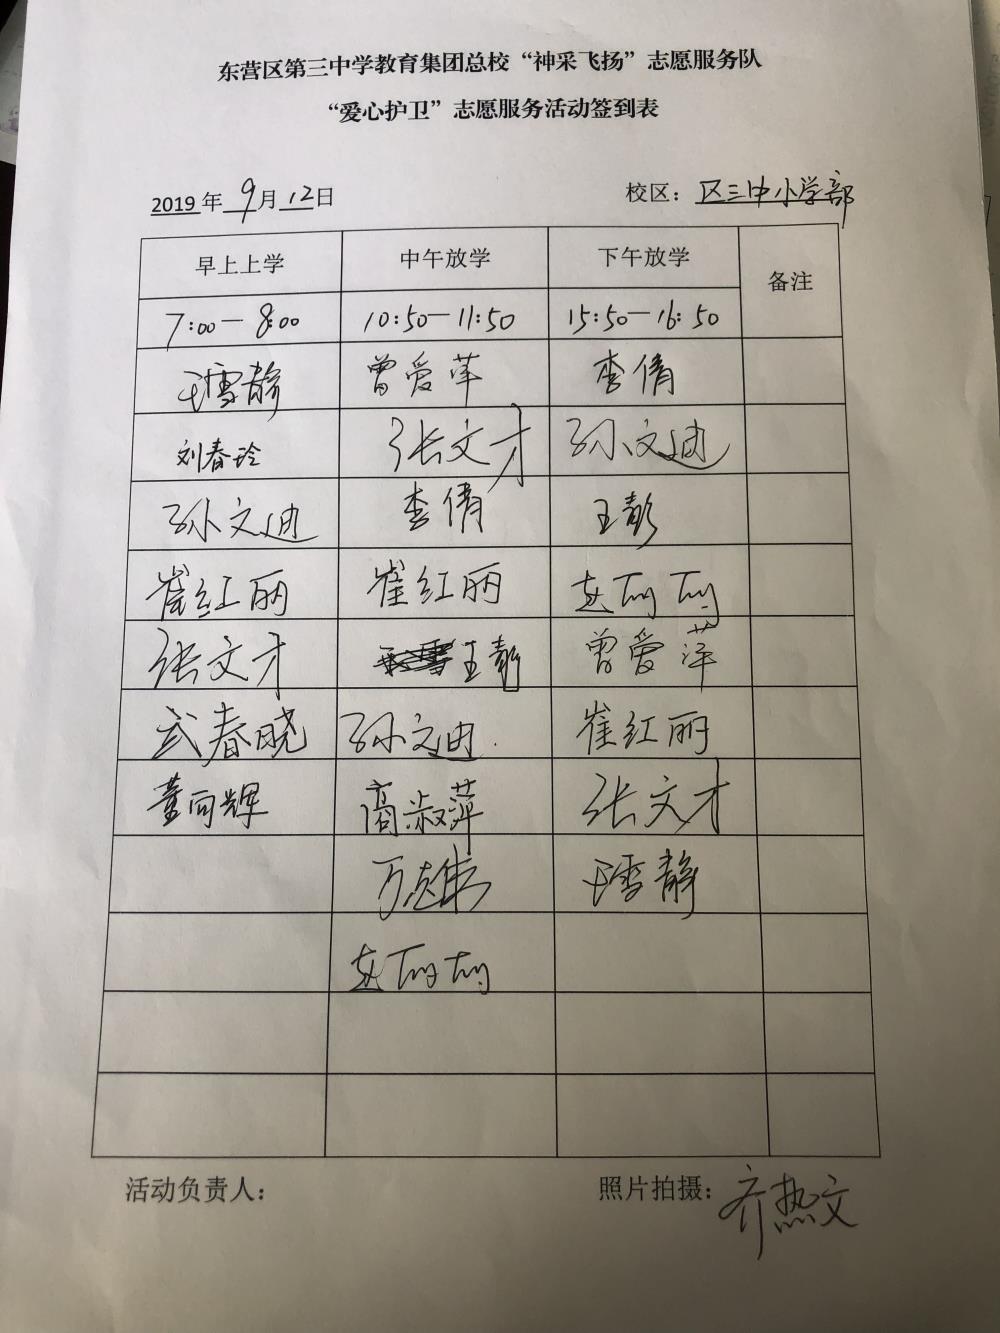 东营区第三中学教育集团总校“神采飞扬”志愿服务队
“爱心护卫”志愿服务活动签到表
2019年 9月 12日 校区：区三中小学部
早上上学 中午放学 下午放学 备注
7:00－8:00 10:50－11:50 15:50－16:50
于雪静 曾爱萍 李倩
刘春玲 张文才 孙文迪
孙文迪 李倩 王彭
崔红丽 崔红丽 赵丽丽
张文才 王静 曾爱萍
武春晓 孙文迪 崔红丽
董向辉 高淑萍 张文才
于雪静
赵丽丽
活动负责人： 照片拍摄：齐热文